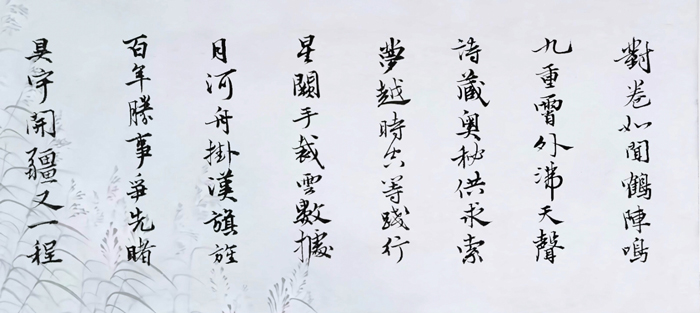 對卷如聞鶴陣鳴
九重霄外沸天聲
詩藏奧秘供求索
夢越時空等踐行
星關手裁雲數據
月河舟掛漢旗旌
百年勝事爭先睹
昊宇開疆又一程